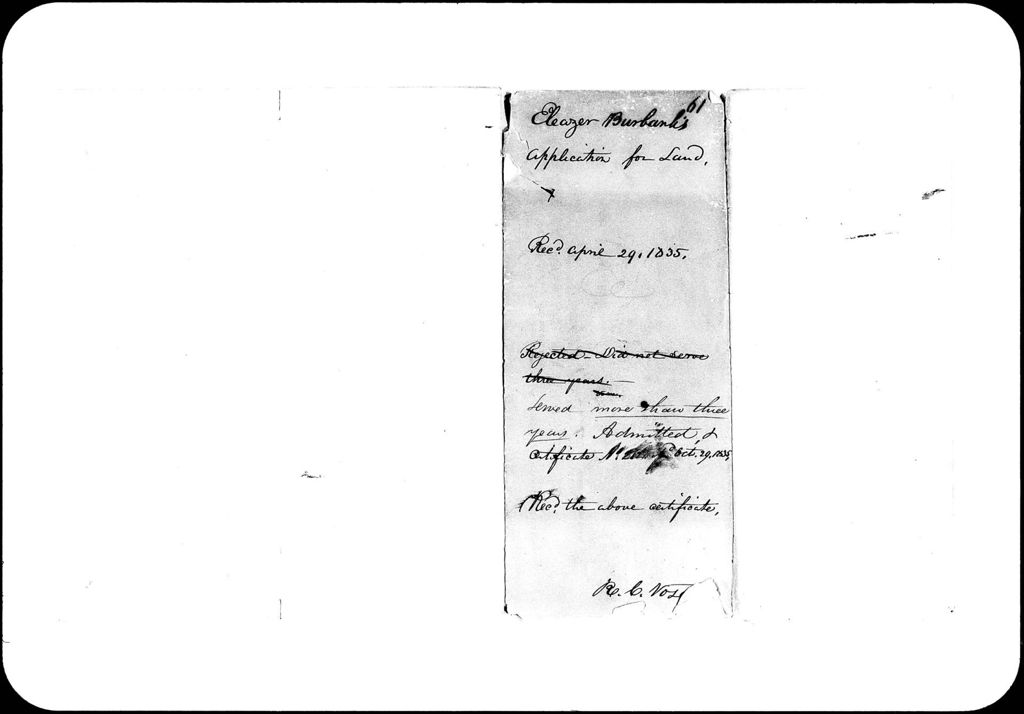 61
Eleazer Burbank's
Application for Land.
Rec'd. April 29, 1835.
Rejected - Did not serve
three years. -
Served more than three
years. Admitted, &
Certificate No. Oct. 29, 1835
Rec'd. the above certificate,
R. C. Vose